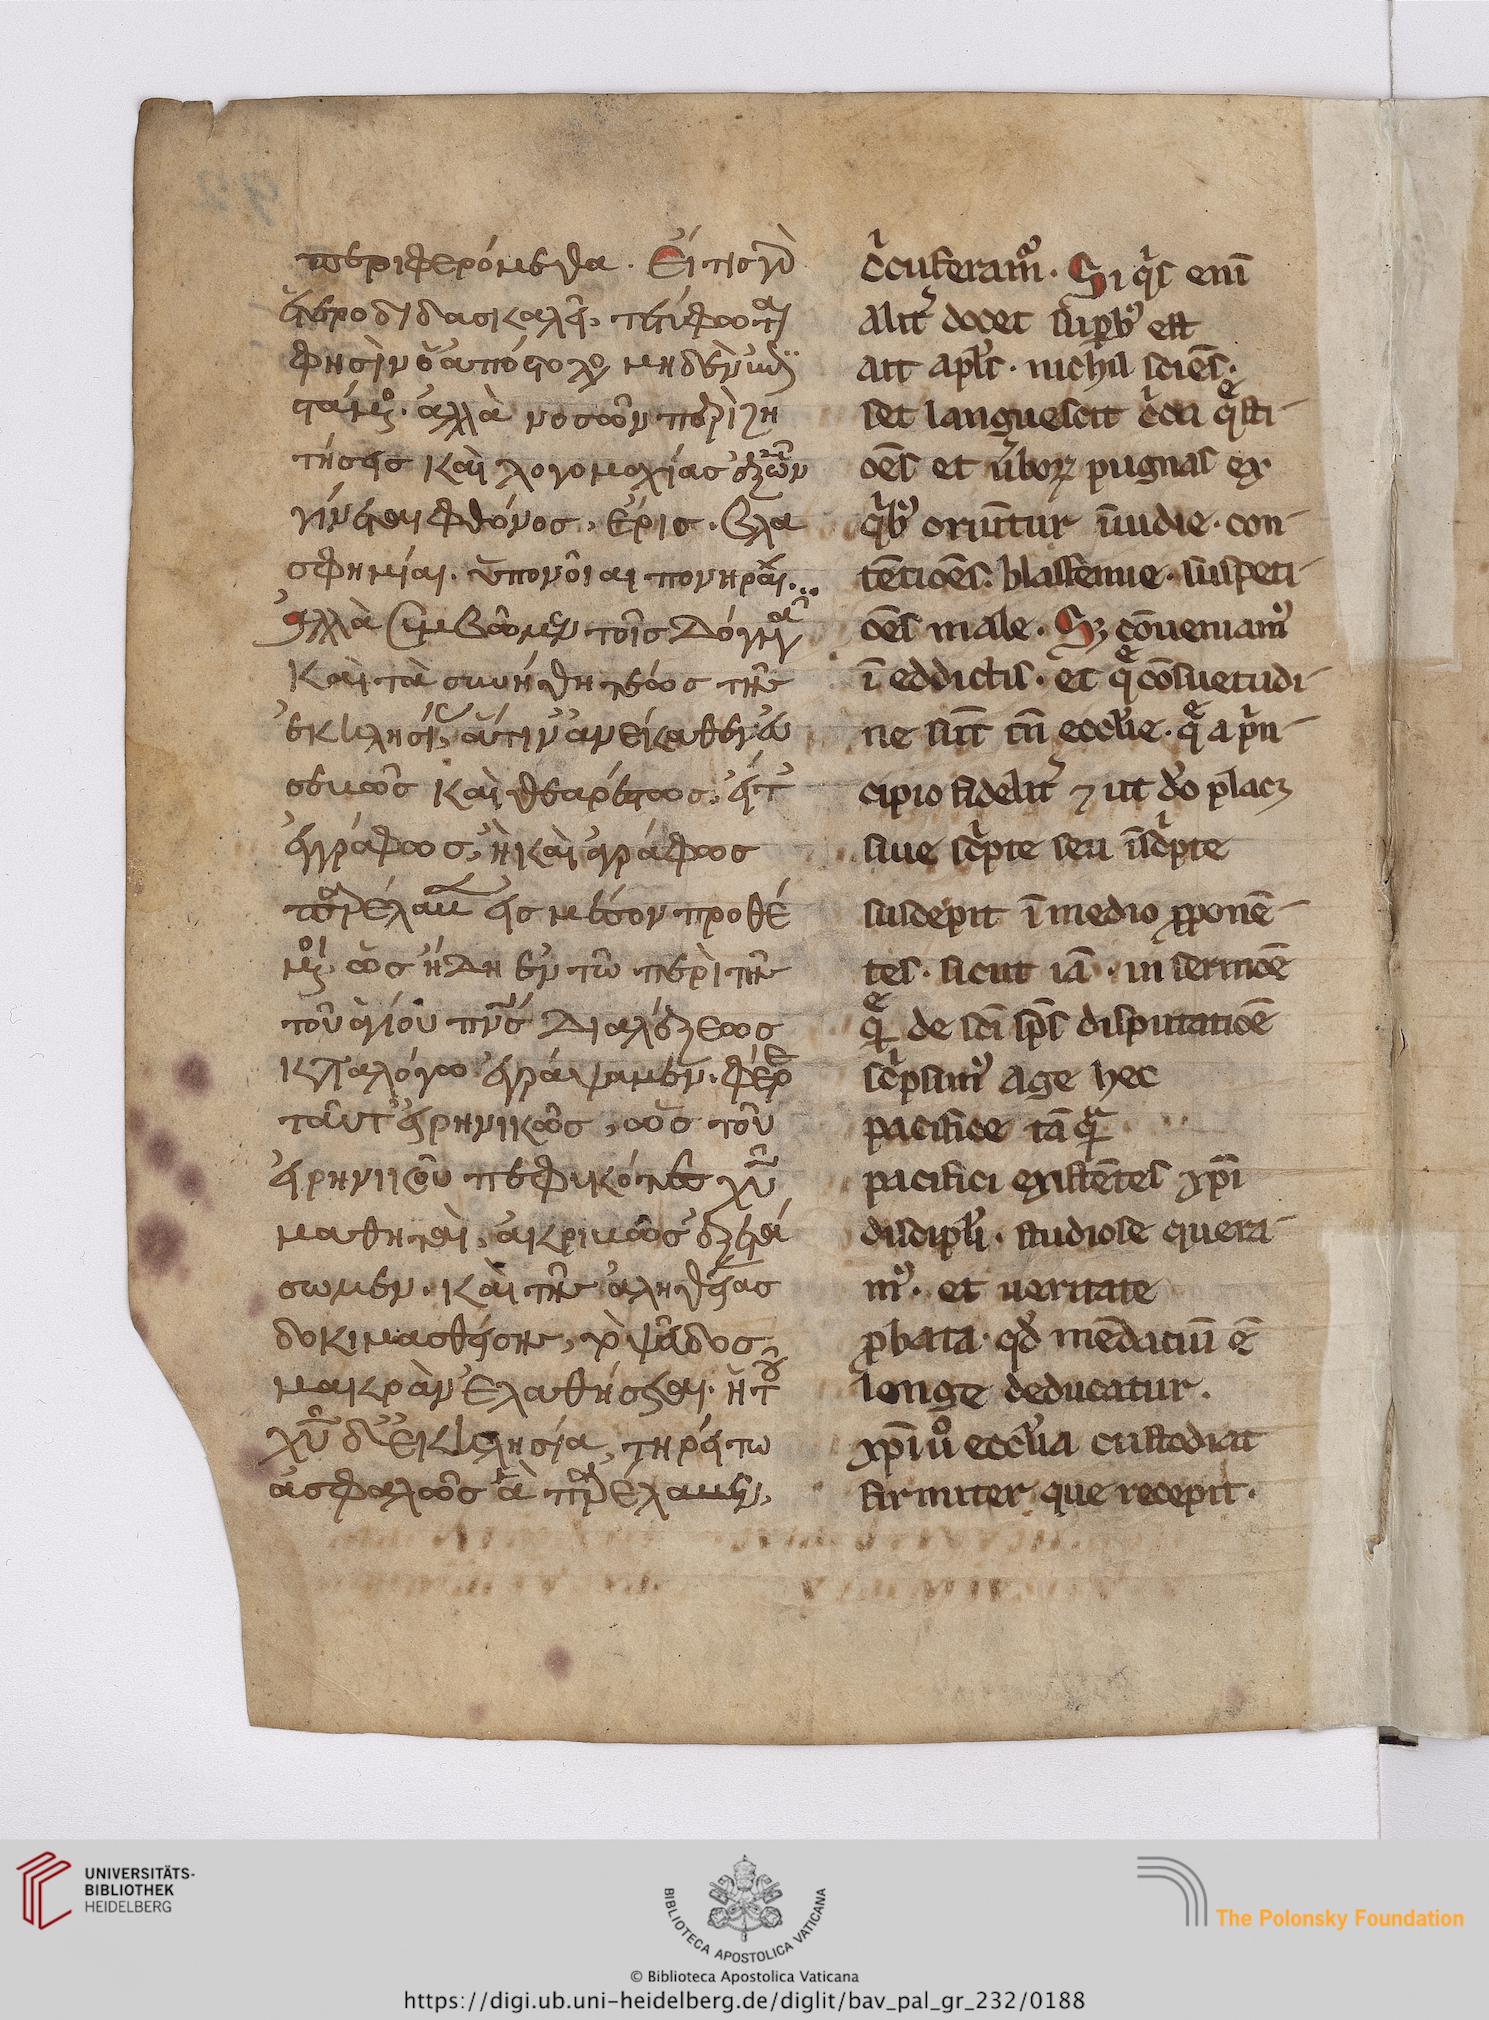 περιφερόμεθα. Εἴ τις γὰρ
ἑτεροδιδασκαλεῖ, τετύφωται
φησὶν ὁ ἀπόστολος μηδὲν ἐπι
στάμενος. ἀλλὰ νοσῶν περὶ ζη
τήσεις καὶ λογομαχίας ἐξ ὧν
γίνεται φθόνος. ἔρις. βλα
σφημίαι. ὑπόνοιαι πονηραί.
Ἀλλὰ συμβῶμεν τοῖς δόγμασι
καὶ τὰ συνήθη τέως τῆς
ἐκκλησίας ἅτιν' ἀνέκαθεν εὐ
σεβῶς καὶ θεαρέστως, εἴτ'
ἐγγράφως, ἢ καὶ ἀγράφως
παρέλαβεν εἰς μέσον προθέ
μενοι ὡς ἤδη ἐν τῷ περὶ τῆς
τοῦ ἁγίου πνς διαλέξεως
λόγῳ ἐγράψαμεν. φέρε
ταῦτ' εἰρηνικῶς, ὡς τοῦ
εἰρηνικοῦ πεφυκότες χυ
μαθηταὶ, ἀκριβῶς ἐξετά
σωμεν. καὶ τῆς ἀληθείας
δοκιμασθείσης, τὸ ψεῦδος
μακρὰν ἐλαθήσεται. ἡ τοῦ
χυ δ' ἐκκλησία, τηρείτω
ἀσφαλῶς ἃ παρέλαβεν,
circuferamur. Si quis enim
aliter docet superbus est
ait apls. nichil sciens.
set languescit circa questi-
ones et verborum pugnas ex
quibus oriuntur invidie. con-
tentiones. blasfemie. suspeti-
ones male. Set conveniamus
in eddictis. et que consuetudi-
ne sunt tn ecclesie. que a prin-
cipio fideliter et ut deo placet
siue scripte seu inscripte
suscepit in medio proponen-
tes. sicut iam in sermone
que de sci sps disputatione
scripsimus age hec
pacifice tamquam
pacifici existentes xpi
discipuli. studiose quera-
mus. et veritate
probata. quod mendacium est
longe deducatur.
xpi vero ecclesia custodiat
firmiter que recepit.
UNIVERSITÄTS-
BIBLIOTHEK
HEIDELBERG
BIBLIOTECA APOSTOLICA VATICANA
The Polonsky Foundation
© Biblioteca Apostolica Vaticana
https://digi.ub.uni-heidelberg.de/diglit/bav_pal_gr_232/0188